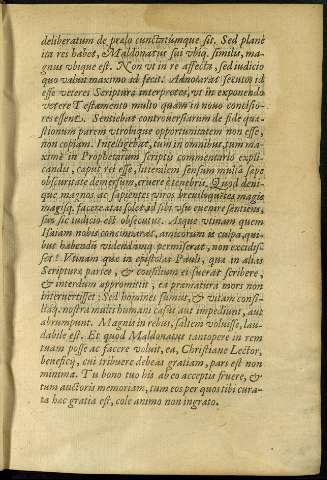 deliberatum de prælo cunctatúmque sit. Sed planè
ita res habet, Maldonatus sui vbiq. similis, ma-
gnus vbique est. Non vt in re affecta, sed iudicio
quo valuit maximo id fecit. Adnotarat secutus id
esse veteres Scripturæ interpretes, vt in exponendo
vetere Testamento multo quam in nouo concisio-
res essent. Sentiebat controuersiarum de fide quæ-
stionum parem vtrobique opportunitatem non esse,
non copiam. Intelligebat, tum in omnibus, tum ma-
ximè in Prophetarum scriptis commentario expli-
candis, caput rei esse, literalem sensum multa sæpe
obscuritate demersum, eruere è tenebris. Quod deni-
que magnos ac sapientes viros breuiloquētes magis
magisq. facere ætas solet ad sibi vsu euenire sentiens,
sin sic iudicio est obsecutus. Atque vtinam quem
Isaiam nobis concinnarat, amicorum is culpa, qui-
bus habendū videndúmq; permiserat, non excidis-
set! Vtinam quæ in epistolas Pauli, quæ in alias
Scripturæ partes, & consilium ei fuerat scribere,
& interdum appromittit, ea præmatura mors non
interuertisset: Sed homines sumus, & vitam consi-
liáq. nostra multi humani casus aut impediunt, aut
abrumpunt. Magnis in rebus, saltem voluisse, lau-
dabile est. Et quod Maldonatus tantopere in rem
tuam posse ac facere voluit, ea, Christiane Lector,
beneficij, cui tribuere debeas gratiam, pars est non
minima. Tu bono tuo his ab eo acceptis fruere, &
tum auctoris memoriam, tum eos per quos tibi cura-
ta hæc gratia est, cole animo non ingrato.